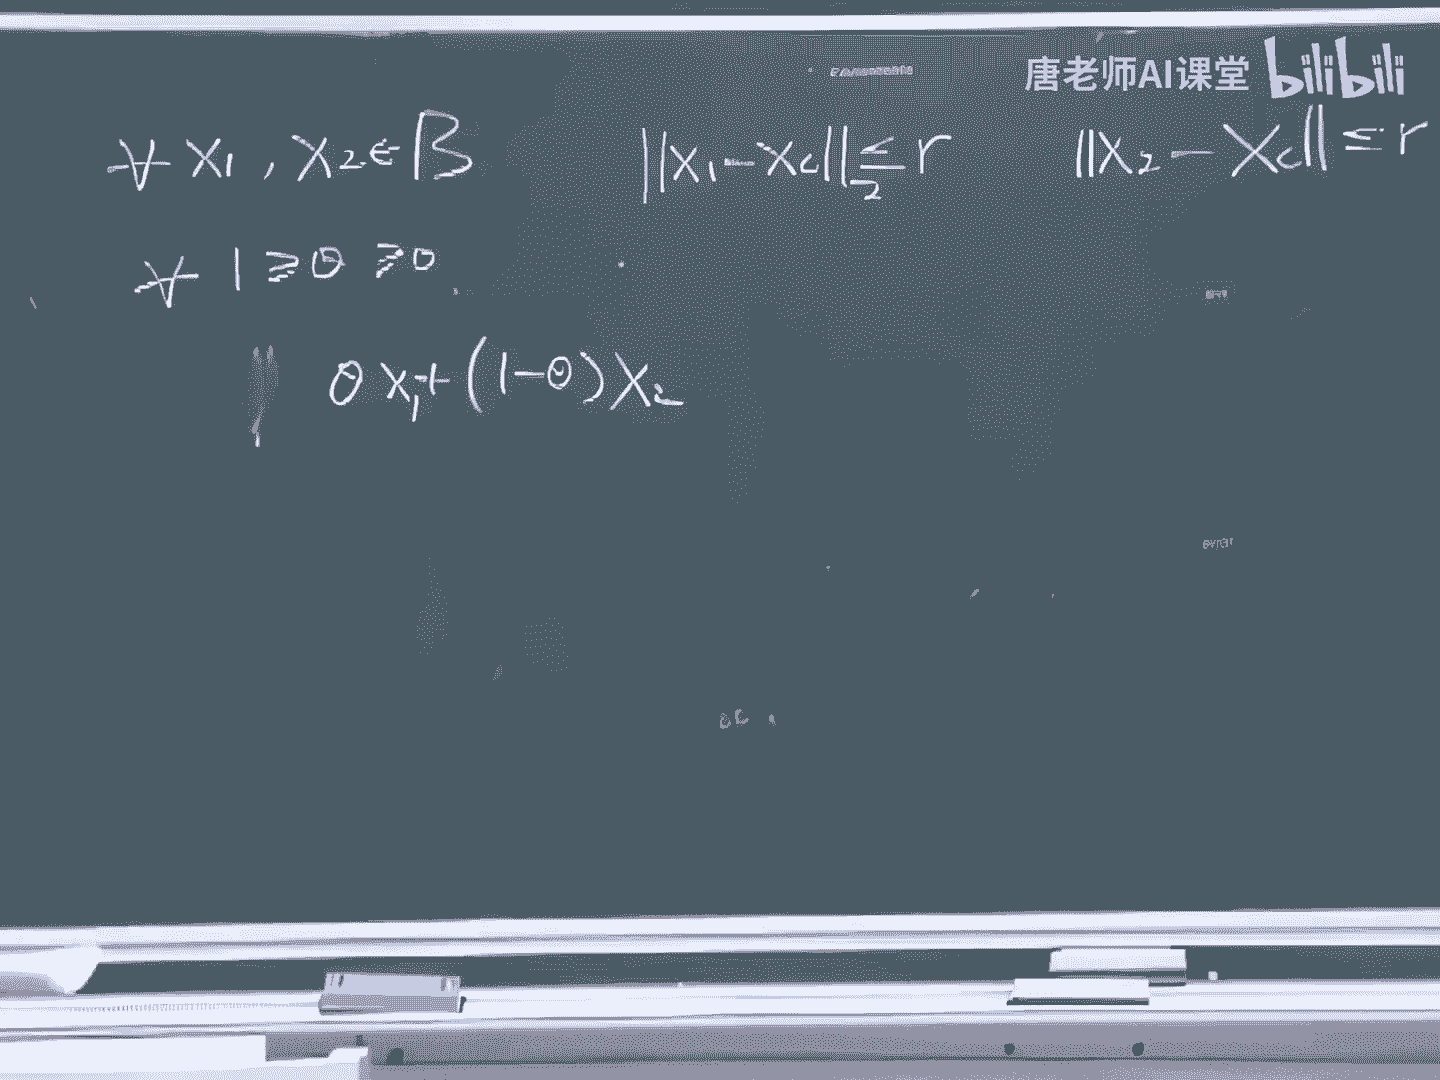 唐老师AI课堂 bilibili
∀ x₁ , x₂ ∈ B ||x₁ - x_c||₂ ≤ r ||x₂ - x_c|| ≤ r
∀ 1 ≥ θ ≥ 0
|| θ x₁ + (1-θ) x₂